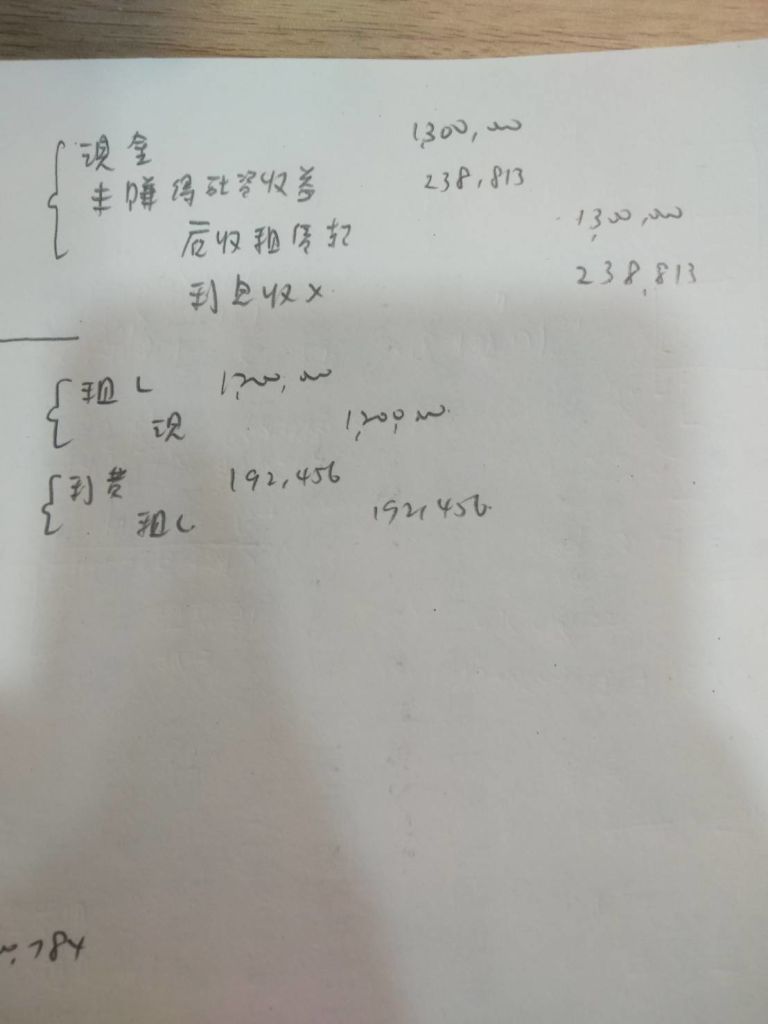 現金 1,300,000
未賺得融資收益 238,813
应收租賃款 1,300,000
利息收入 238,813
租L 1,200,000
現 1,200,000
利費 192,456
租L 192,456
784